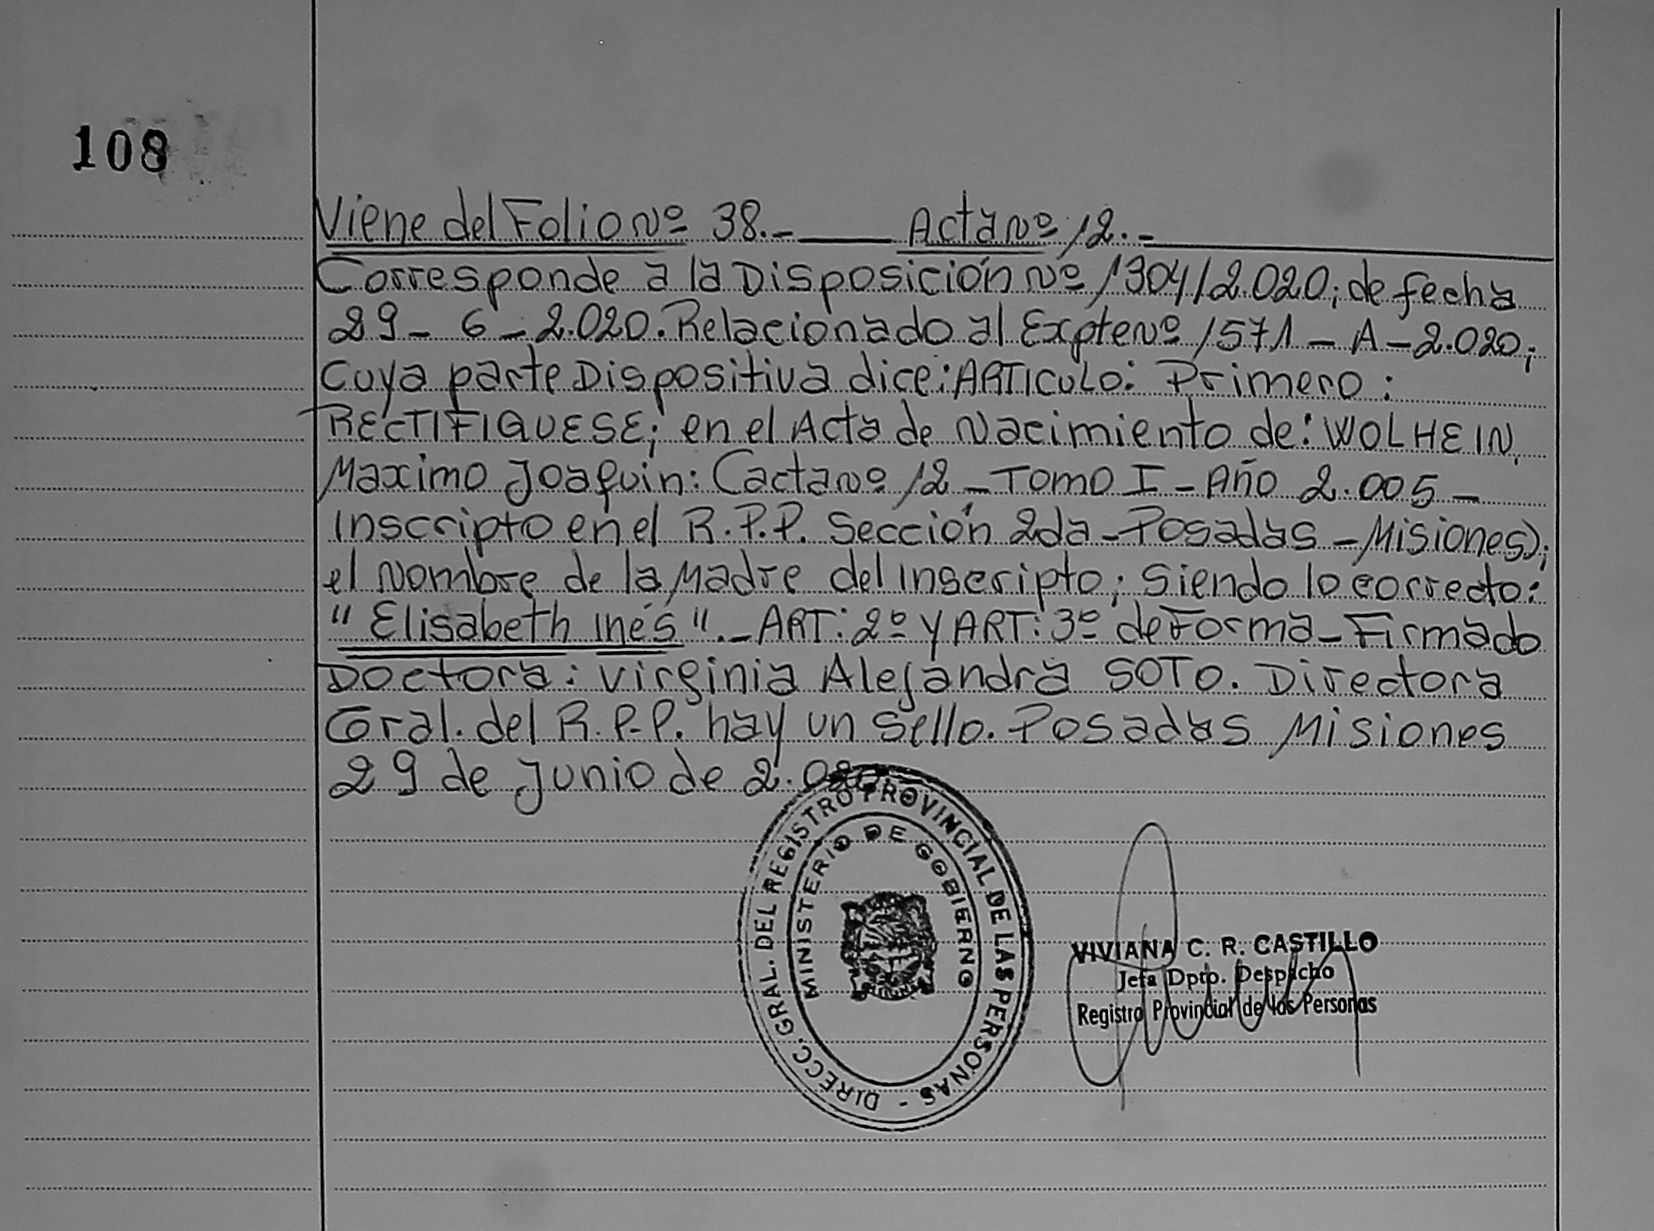 108
Viene del Folio Nº 38.- Acta Nº 12.-
Corresponde a la Disposición Nº 1304/2.020; de fecha
29-6-2.020. Relacionado al Expte Nº 1571-A-2.020;
Cuya parte Dispositiva dice: ARTICULO: Primero:
RECTIFIQUESE; en el Acta de Nacimiento de: WOLHEIN,
Maximo Joaquin: (acta Nº 12 - TOMO I - Año 2.005 -
Inscripto en el R.P.P. Sección 2da - Posadas - Misiones);
el Nombre de la Madre del inscripto; Siendo lo correcto:
"Elisabeth Inés".- ART: 2º Y ART: 3º de Forma - Firmado
Doctora: Virginia Alejandra SOTO. Directora
Gral. del R.P.P. hay un Sello. Posadas Misiones
29 de Junio de 2.020
DIRECC. GRAL. DEL REGISTRO PROVINCIAL DE LAS PERSONAS -
MINISTERIO DE GOBIERNO
VIVIANA C. R. CASTILLO
Jefa Dpto. Despacho
Registro Provincial de las Personas